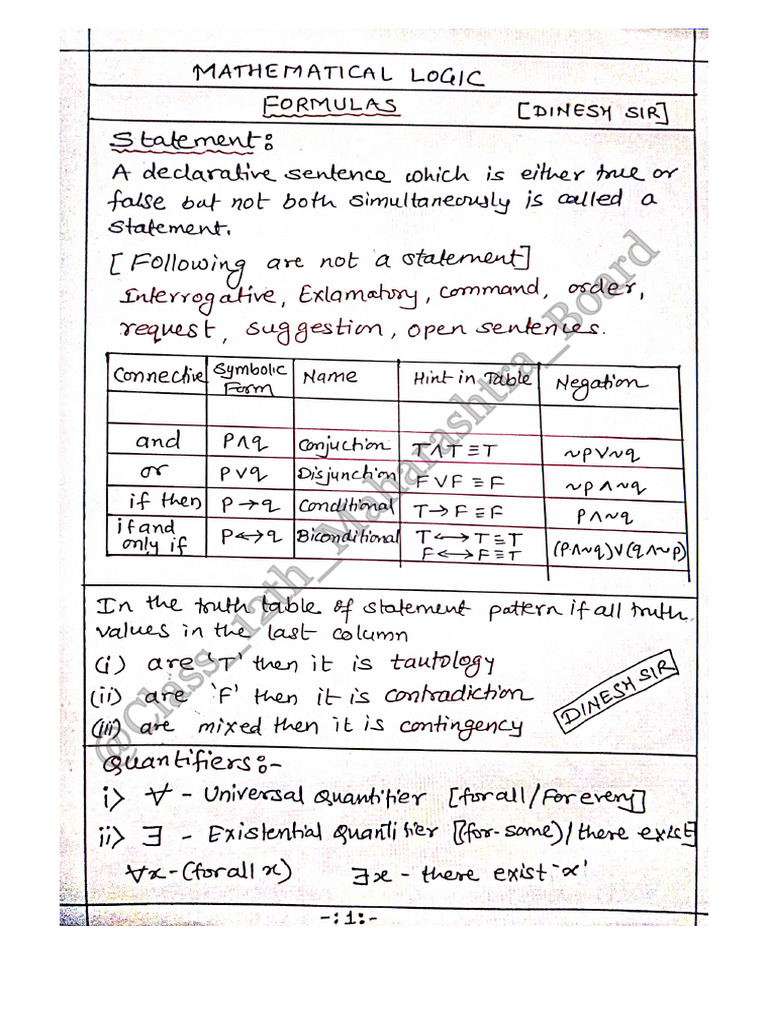 MATHEMATICAL LOGIC
FORMULAS [DINESH SIR]
Statement:
A declarative sentence which is either true or
false but not both simultaneously is called a
statement.
[Following are not a statement]
Interrogative, Exlamatory, command, order,
request, suggestion, open sentences.
Connective Symbolic Form Name Hint in Table Negation
and P∧q Conjuction T∧T≡T ~p∨~q
or P∨q Disjunction F∨F≡F ~p∧~q
if then P→q Conditional T→F≡F P∧~q
if and only if P↔q Biconditional T↔T≡T F↔F≡T (P∧~q)∨(q∧~p)
In the truth table of statement pattern if all truth
values in the last column
(i) are 'T' then it is tautology
(ii) are 'F' then it is contradiction
(iii) are mixed then it is contingency
DINESH SIR
Quantifiers:-
i> ∀ - Universal Quantifier [for all/For every]
ii> ∃ - Existential Quantifier [(for-some)/there exist]
∀x-(for all x) ∃x - there exist 'x'
-:1:-
@Class_12th_Maharashtra_Board